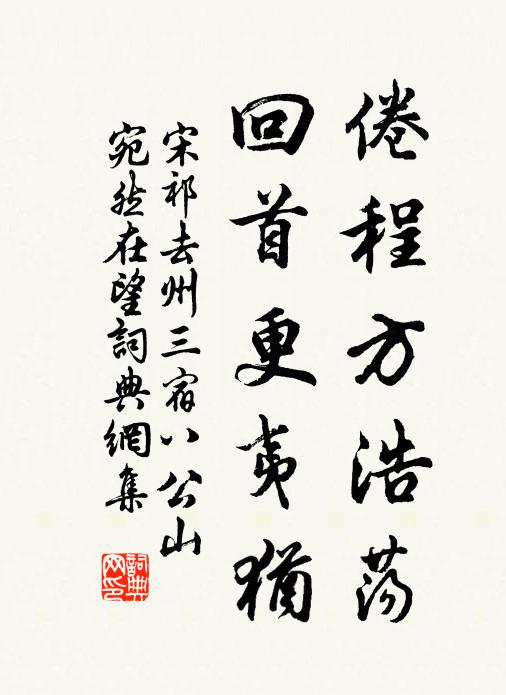 倦程方浩荡
回首更夷猶
宋祁去州三宿八公山
宛然在望詞典網集
詞典网印